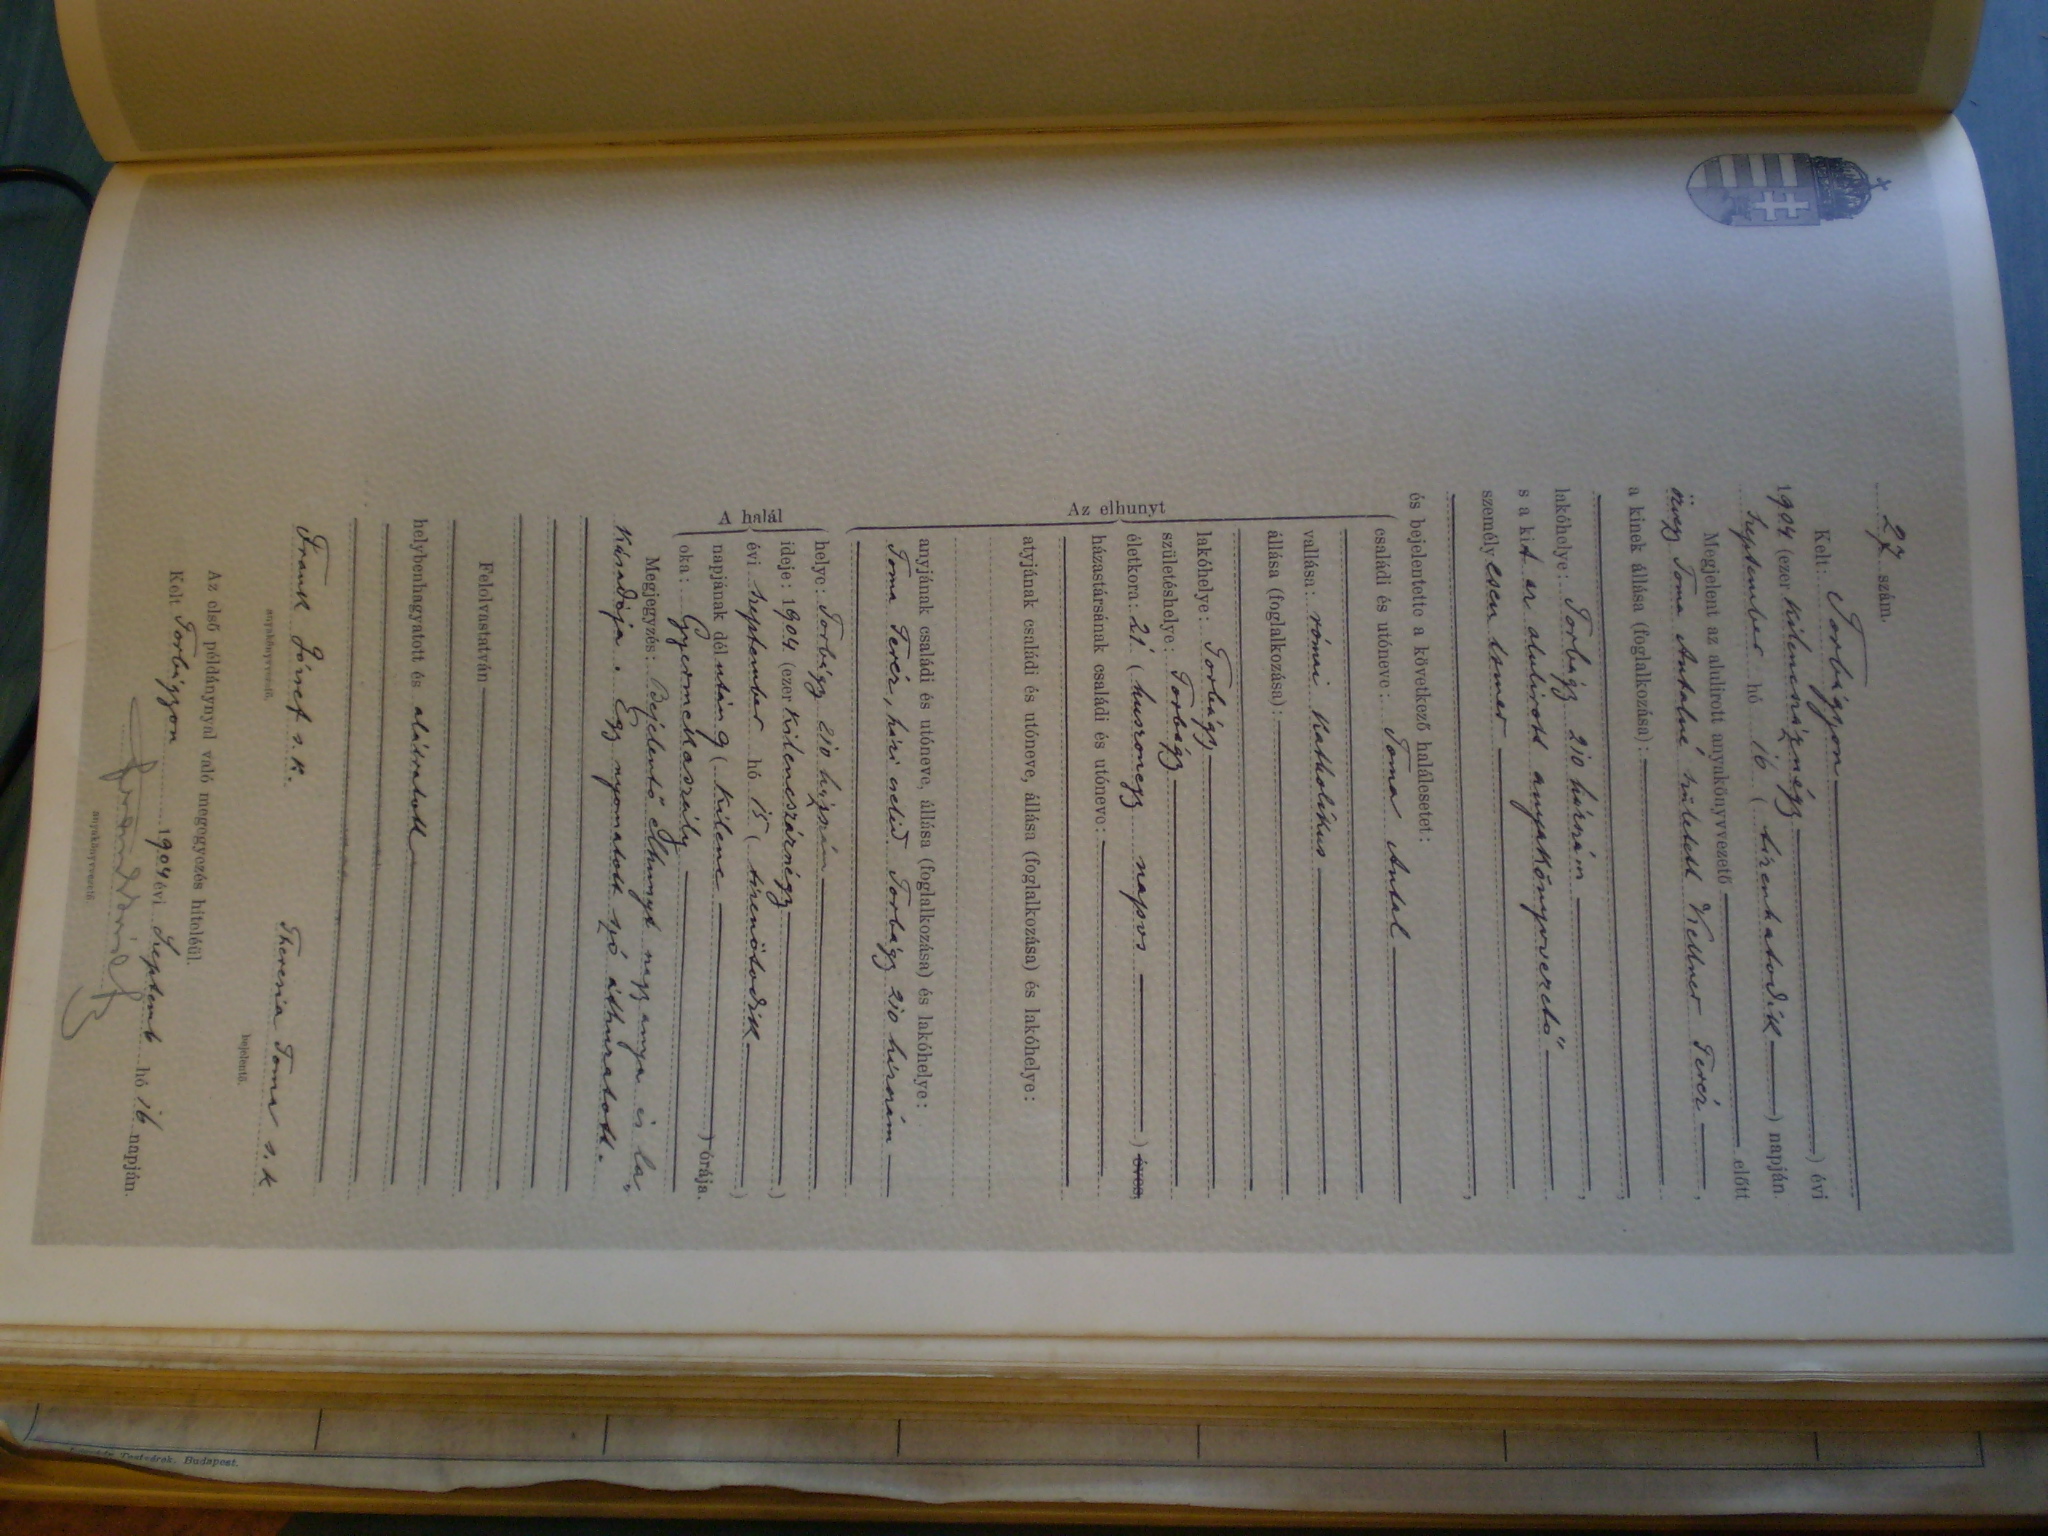 27 szám.
Kelt: Torbágyon
1904 (ezer kilenczszáznégy) évi
September hó 16 (tizenhatodik) napján.
Megjelent az alulirott anyakönyvvezető előtt
özvegy Toma Antalné született Vellner Teréz,
a kinek állása (foglalkozása):
lakóhelye: Torbágy 210 házszám,
s a kit az alulirott anyakönyvvezető
személyesen ismer,
és bejelentette a következő halálesetet:
Az elhunyt
családi és utóneve: Toma Antal
vallása: római katholikus
állása (foglalkozása):
lakóhelye: Torbágy
születéshelye: Torbágy
életkora: 21 (huszonegy napos) éves,
házastársának családi és utóneve:
atyjának családi és utóneve, állása (foglalkozása) és lakóhelye:
anyjának családi és utóneve, állása (foglalkozása) és lakóhelye:
Toma Teréz, házi cseléd Torbágy 210 házszám
A halál
helye: Torbágy 210 házszám
ideje: 1904 (ezer kilenczszáznégy)
évi september hó 15 (tizenötödik)
napjának délután 9 (kilenc) órája.
oka: Gyermekaszály
Megjegyzés: Bejelentő elhunyt nagyanyja és la-
kásadója. Egy nyomatott szó áthuzatott.
Felolvastatván
helybenhagyatott és aláiratott
Frank József s. k. Theresia Toma s. k
anyakönyvvezető. bejelentő.
Az első példánynyal való megegyezés hiteléül.
Kelt Torbágyon 1904 évi Septemb hó 16 napján.
anyakönyvvezető.
Budapest.